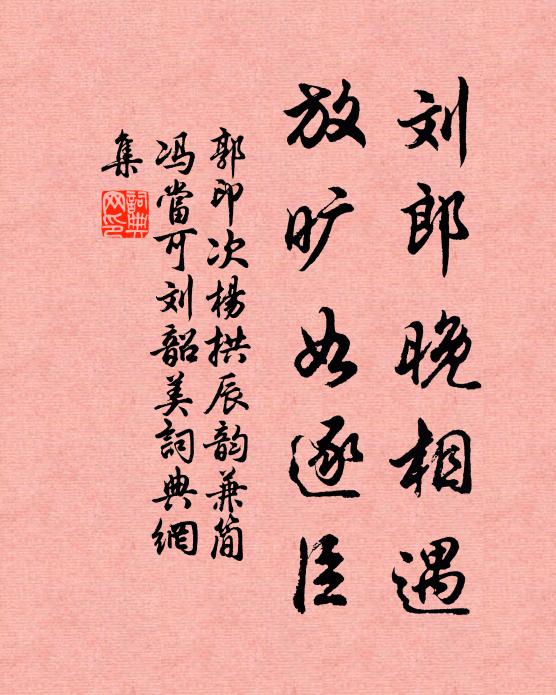 刘郎晚相遇
放旷如逐臣
郭印次杨拱辰韵兼简
冯當可刘韶美詞典網
集
詞典网印